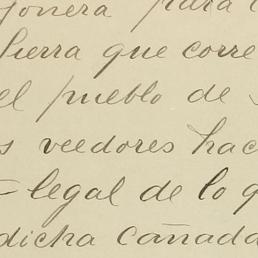 para
tierra que corre
el pueblo de
veedores hac
legal de lo q
dicha cañada